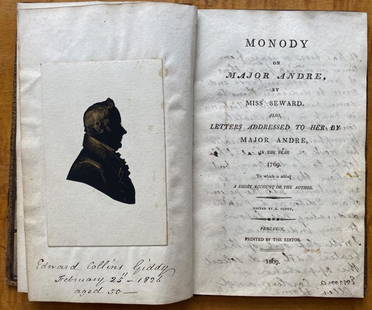 Edward Collins Giddy
February 25th 1826
aged 50 —
MONODY
ON
MAJOR ANDRE,
BY
MISS SEWARD.
ALSO,
LETTERS ADDRESSED TO HER BY
MAJOR ANDRE,
IN THE YEAR
1769.
To which is added
A SHORT ACCOUNT OF THE AUTHOR.
EDITED BY
PENZANCE,
PRINTED BY THE EDITOR.
1809.